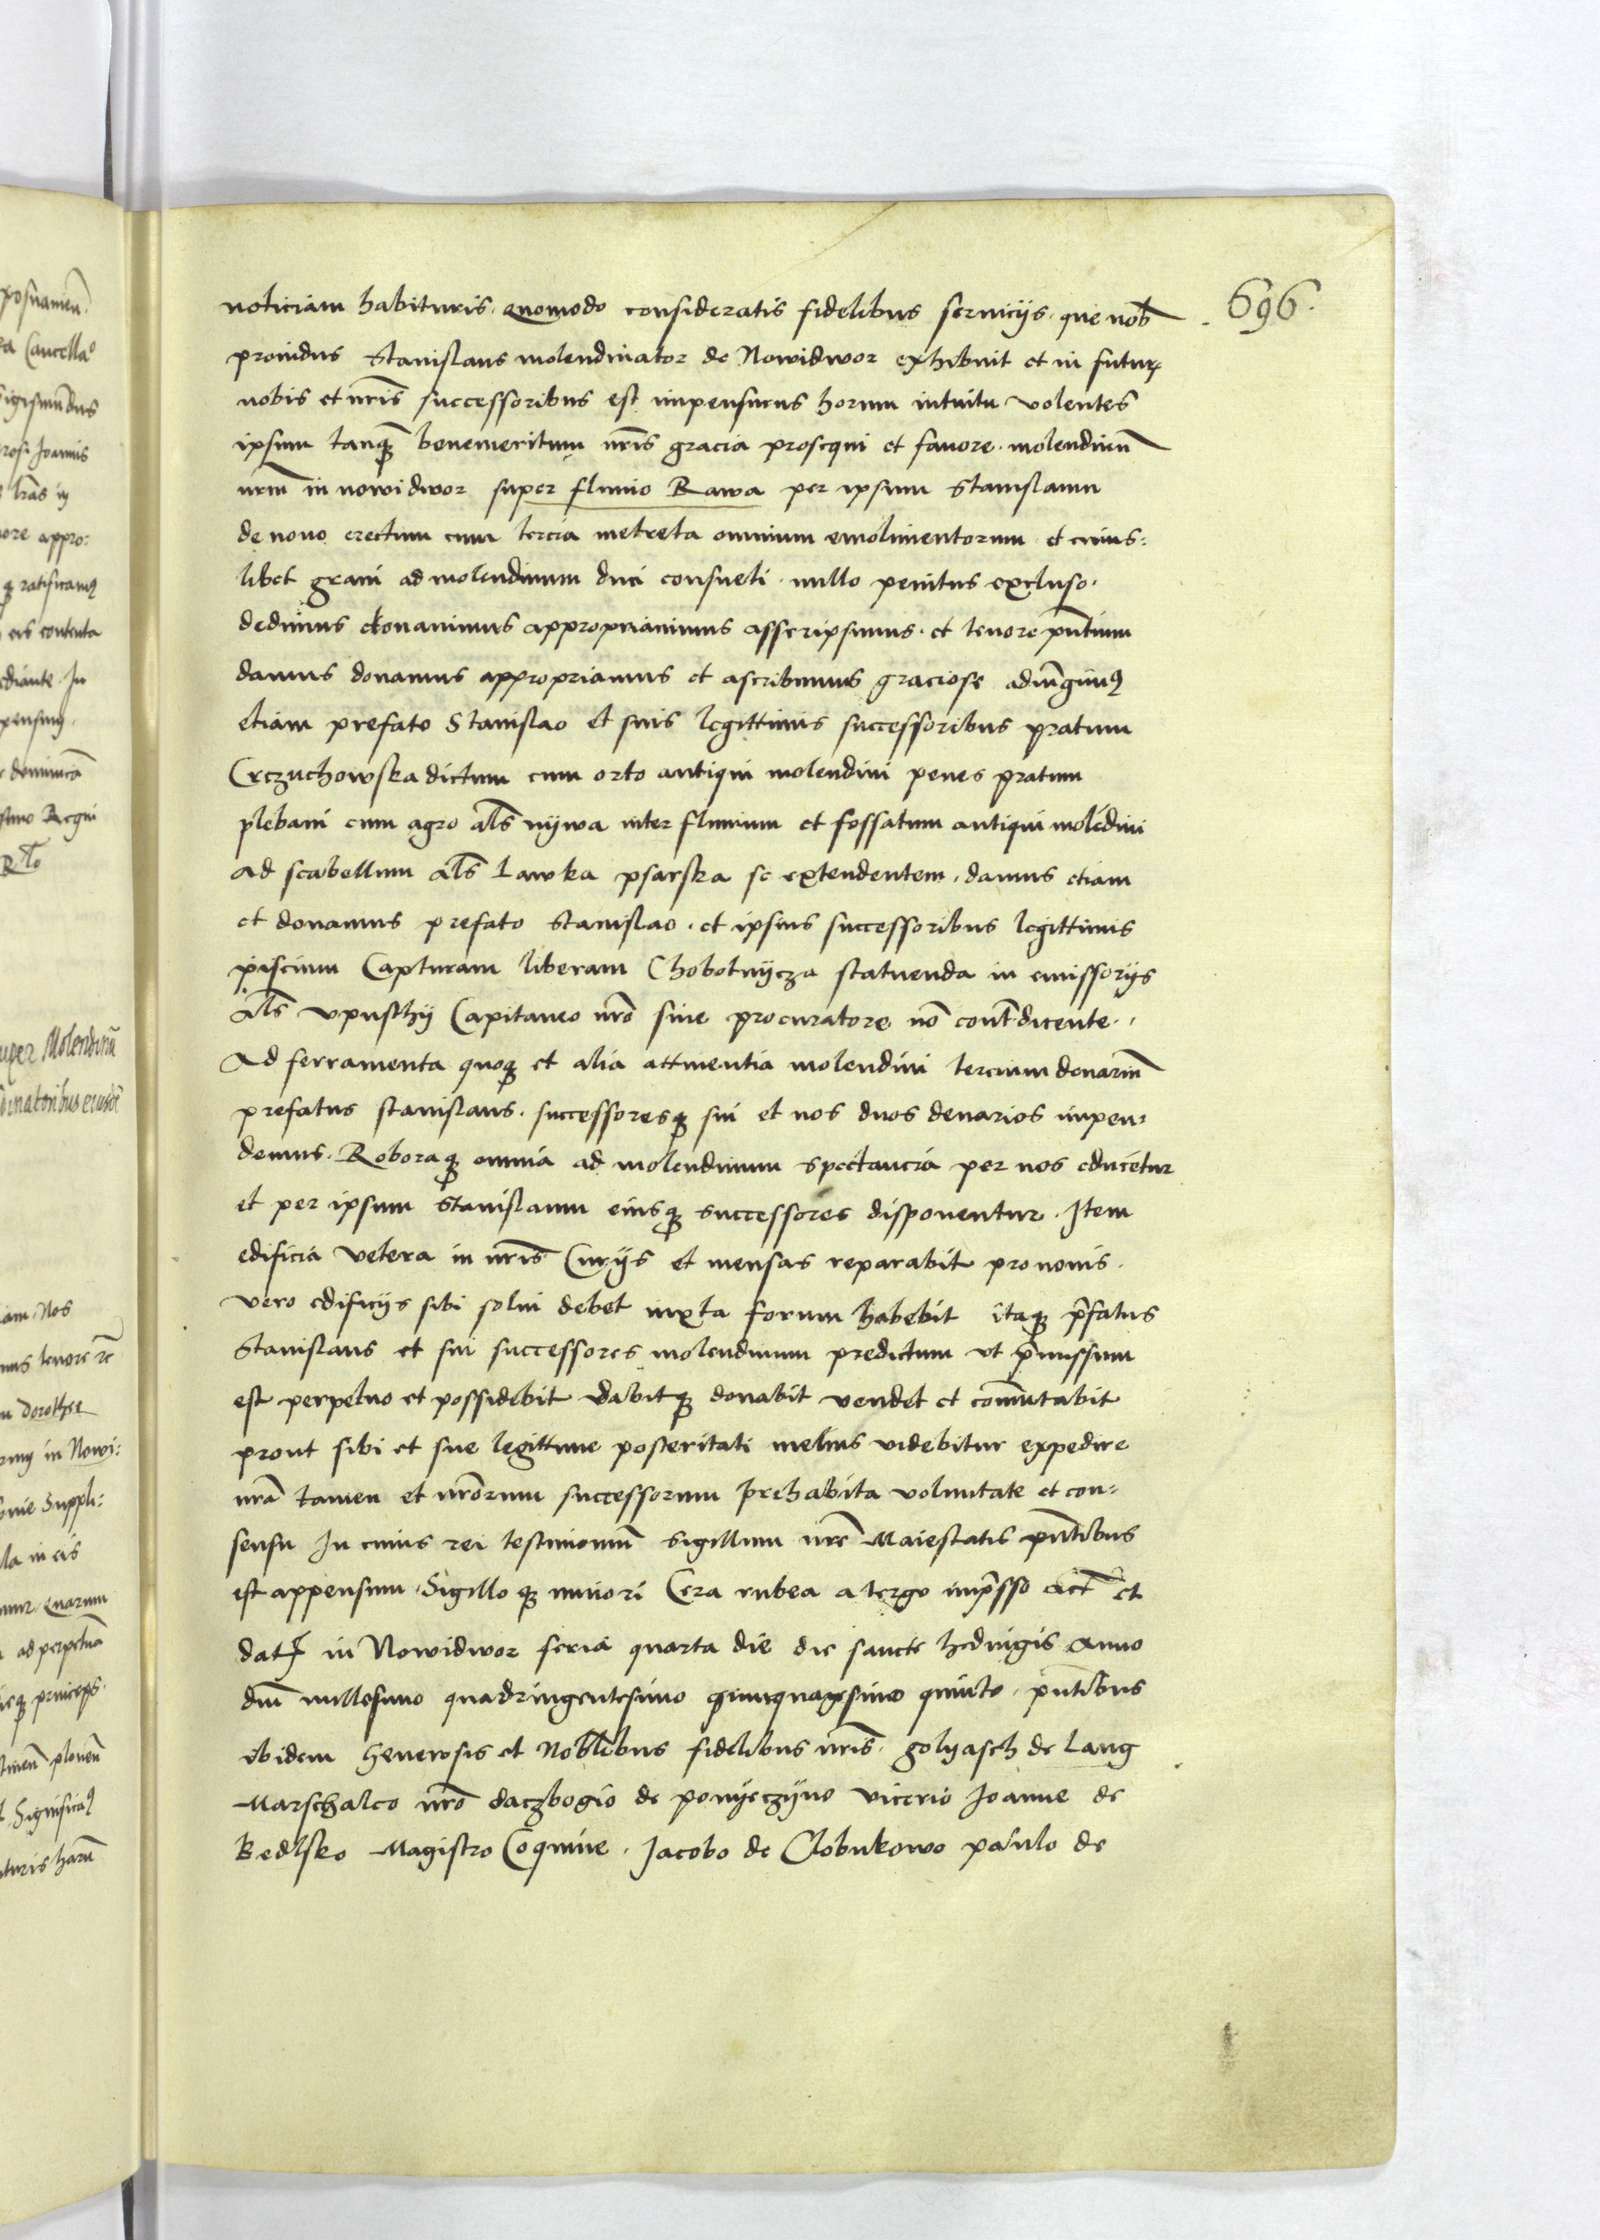 696.
noticiam habituris. quomodo consideratis fidelibus seruicijs. que nob̃
prouidus Stanislaus molendinator de Nowidwor exhibuit et in futur
nobis et nr̃is successoribus est impensurus horum intuitu volentes
ipsum tanq̃ benemeritum nr̃is gracia prosequi et fauore. molendinũ
nrm̃ in nowidwor super fluuio Rawa per ipsum Stanislaum
de nouo erectum cum tercia metreta omnium emolimentorum et cuius:
libet grani ad molendinum duci consueti. nullo penitus excluso.
dedimus donauimus appropriauimus asscripsimus. et tenore pñtium
damus donamus appropriamus et ascribimus graciose adiũgimꝰ
etiam prefato Stanislao et suis legittimis successoribus pratum
Crczuchowska dictum cum orto antiqui molendini penes pratum
plebani cum agro al̃s nijwa inter fluuium et fossatum antiqui molẽdini
ad scabellum al̃s Lawka psarska se extendentem. damus etiam
et donamus prefato Stanislao. et ipsius successoribus legittimis
piscium Capturam liberam Chobotnijcza statuenda in emissorijs
al̃s vpusthij Capitaneo nr̃o siue procuratore nõ cont̃dicente.
Ad ferramenta quoqꝫ et alia attinentia molendini tercium denariũ
prefatus stanislaus. successoresqꝫ sui et nos duos denarios impen:
demus. Roboraqꝫ omnia ad molendinum spectancia per nos educẽtur
et per ipsum Stanislaum eiusqꝫ successores disponentur. Item
edificia vetera in nr̃is Curijs et mensas reparabit pro nouis.
vero edificijs sibi solui debet iuxta forum habebit itaqꝫ p̃fatus
Stanislaus et sui successores molendinum predictum vt p̃missum
est perpetuo et possidebit dabitqꝫ donabit vendet et com̃utabit
prout sibi et sue legittime posteritati melius videbitur expedire
nrã tamen et nr̃orum successorum prehabita voluntate et con:
sensu In cuius rei testimoniũ sigillum nrẽ Maiestatis pñtibus
est appensum. Sigilloqꝫ minori Cera rubea a tergo imp̃sso act̃ et
dat̃ in Nowidwor feria quarta die die sancte hedwigis anno
dñi millesimo quadringentesimo quinquagesimo quinto. pñtibus
ibidem generosis et Nobl̃ibus fidelibus nr̃is. golyasch de Lang
Marschalco nr̃o daczbogio de ponijeczijno vicerio Joanne de
Bedlsko Magistro Coquine. Jacobo de Clobukowo paulo de